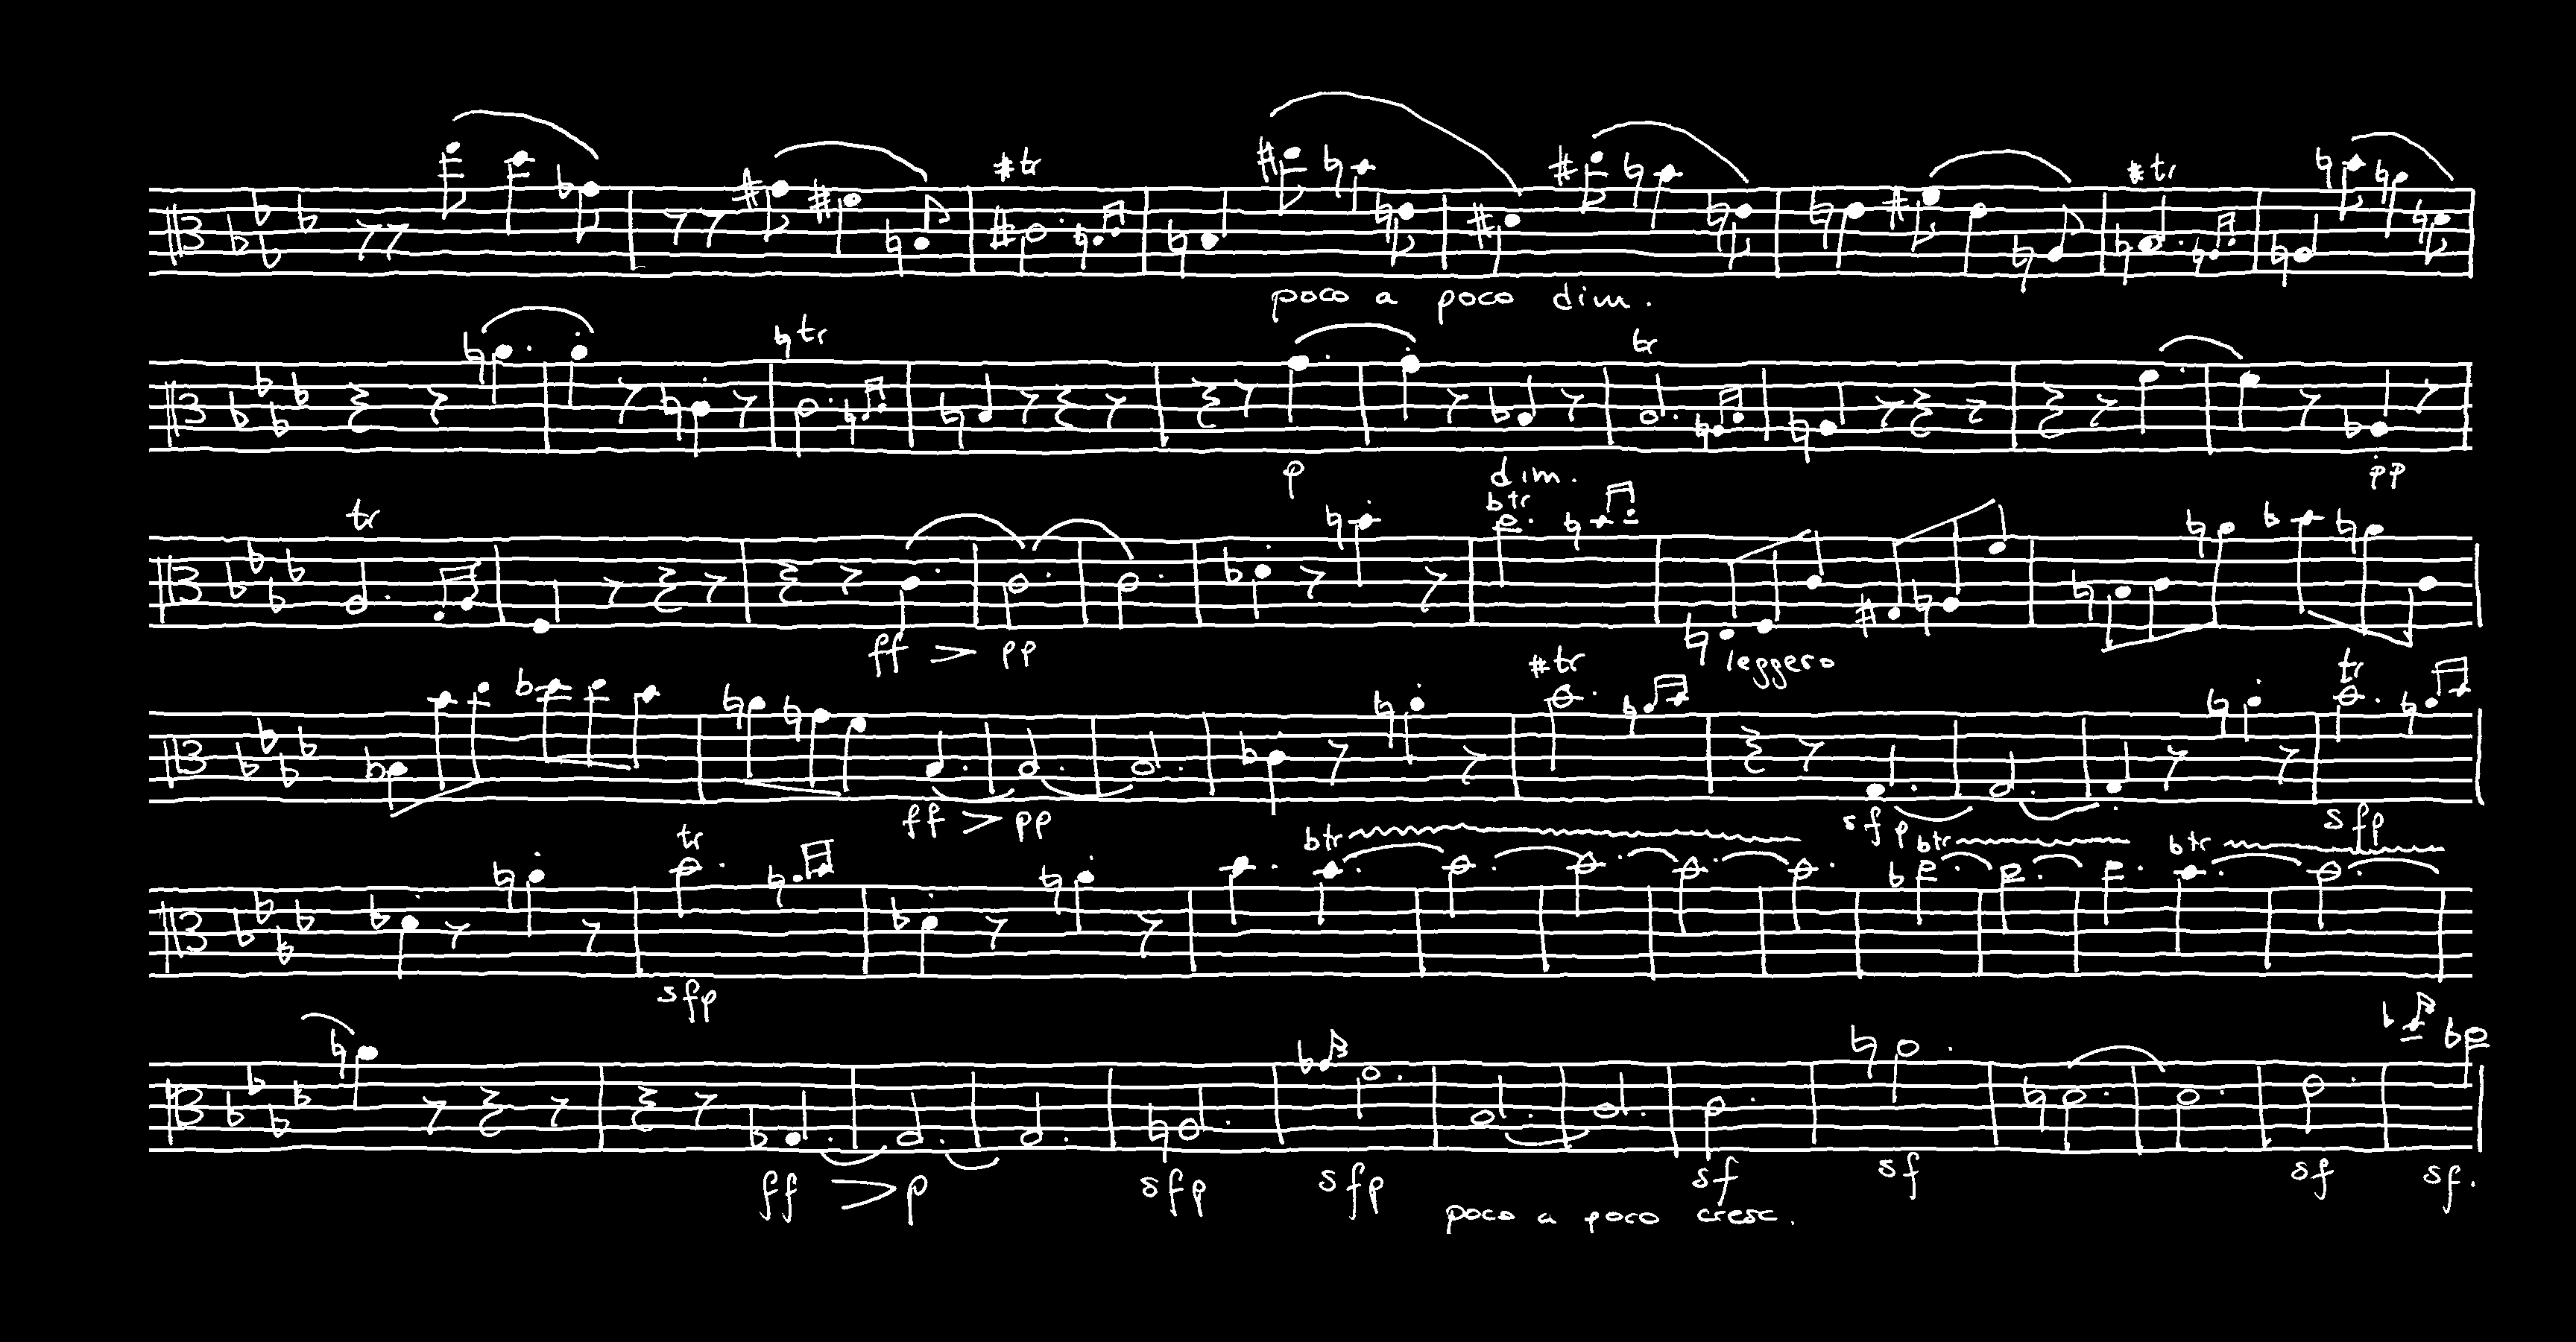 tr
poco a poco dim.
tr
tr
tr
p
dim.
pp
tr
tr
ff pp
leggero
tr
tr
ff pp
sfp
sfp
tr
tr
tr
tr
sfp
ff p
sfp
sfp
sf
sf
sf
sf.
poco a poco cresc.